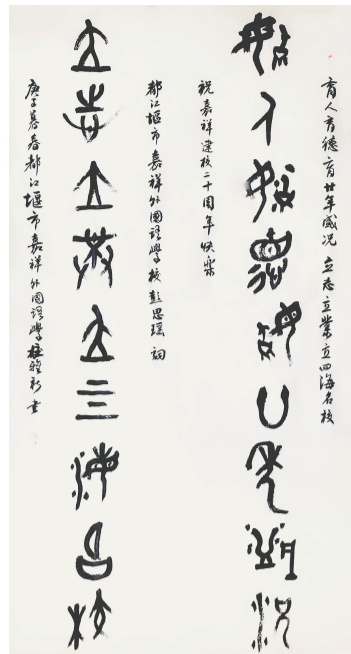 育人育德育廿年盛况 立志立業立四海名校
育人育德育廿年盛况
祝嘉祥建校二十周年快樂
都江堰市嘉祥外國語學校彭思瑶 詞
立志立業立四海名校
庚子暮春都江堰市嘉祥外國語學校 書